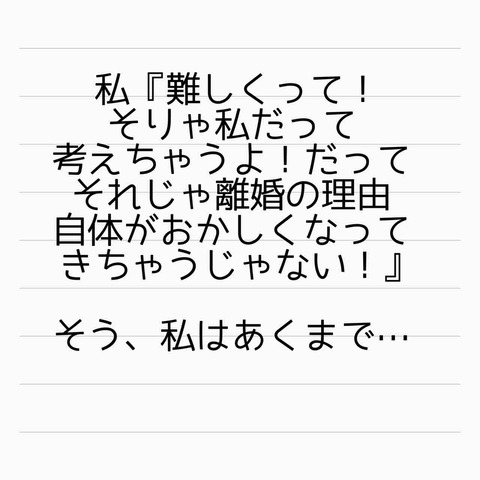 私『難しくって！
そりゃ私だって
考えちゃうよ！だって
それじゃ離婚の理由
自体がおかしくなって
きちゃうじゃない！』
そう、私はあくまで…